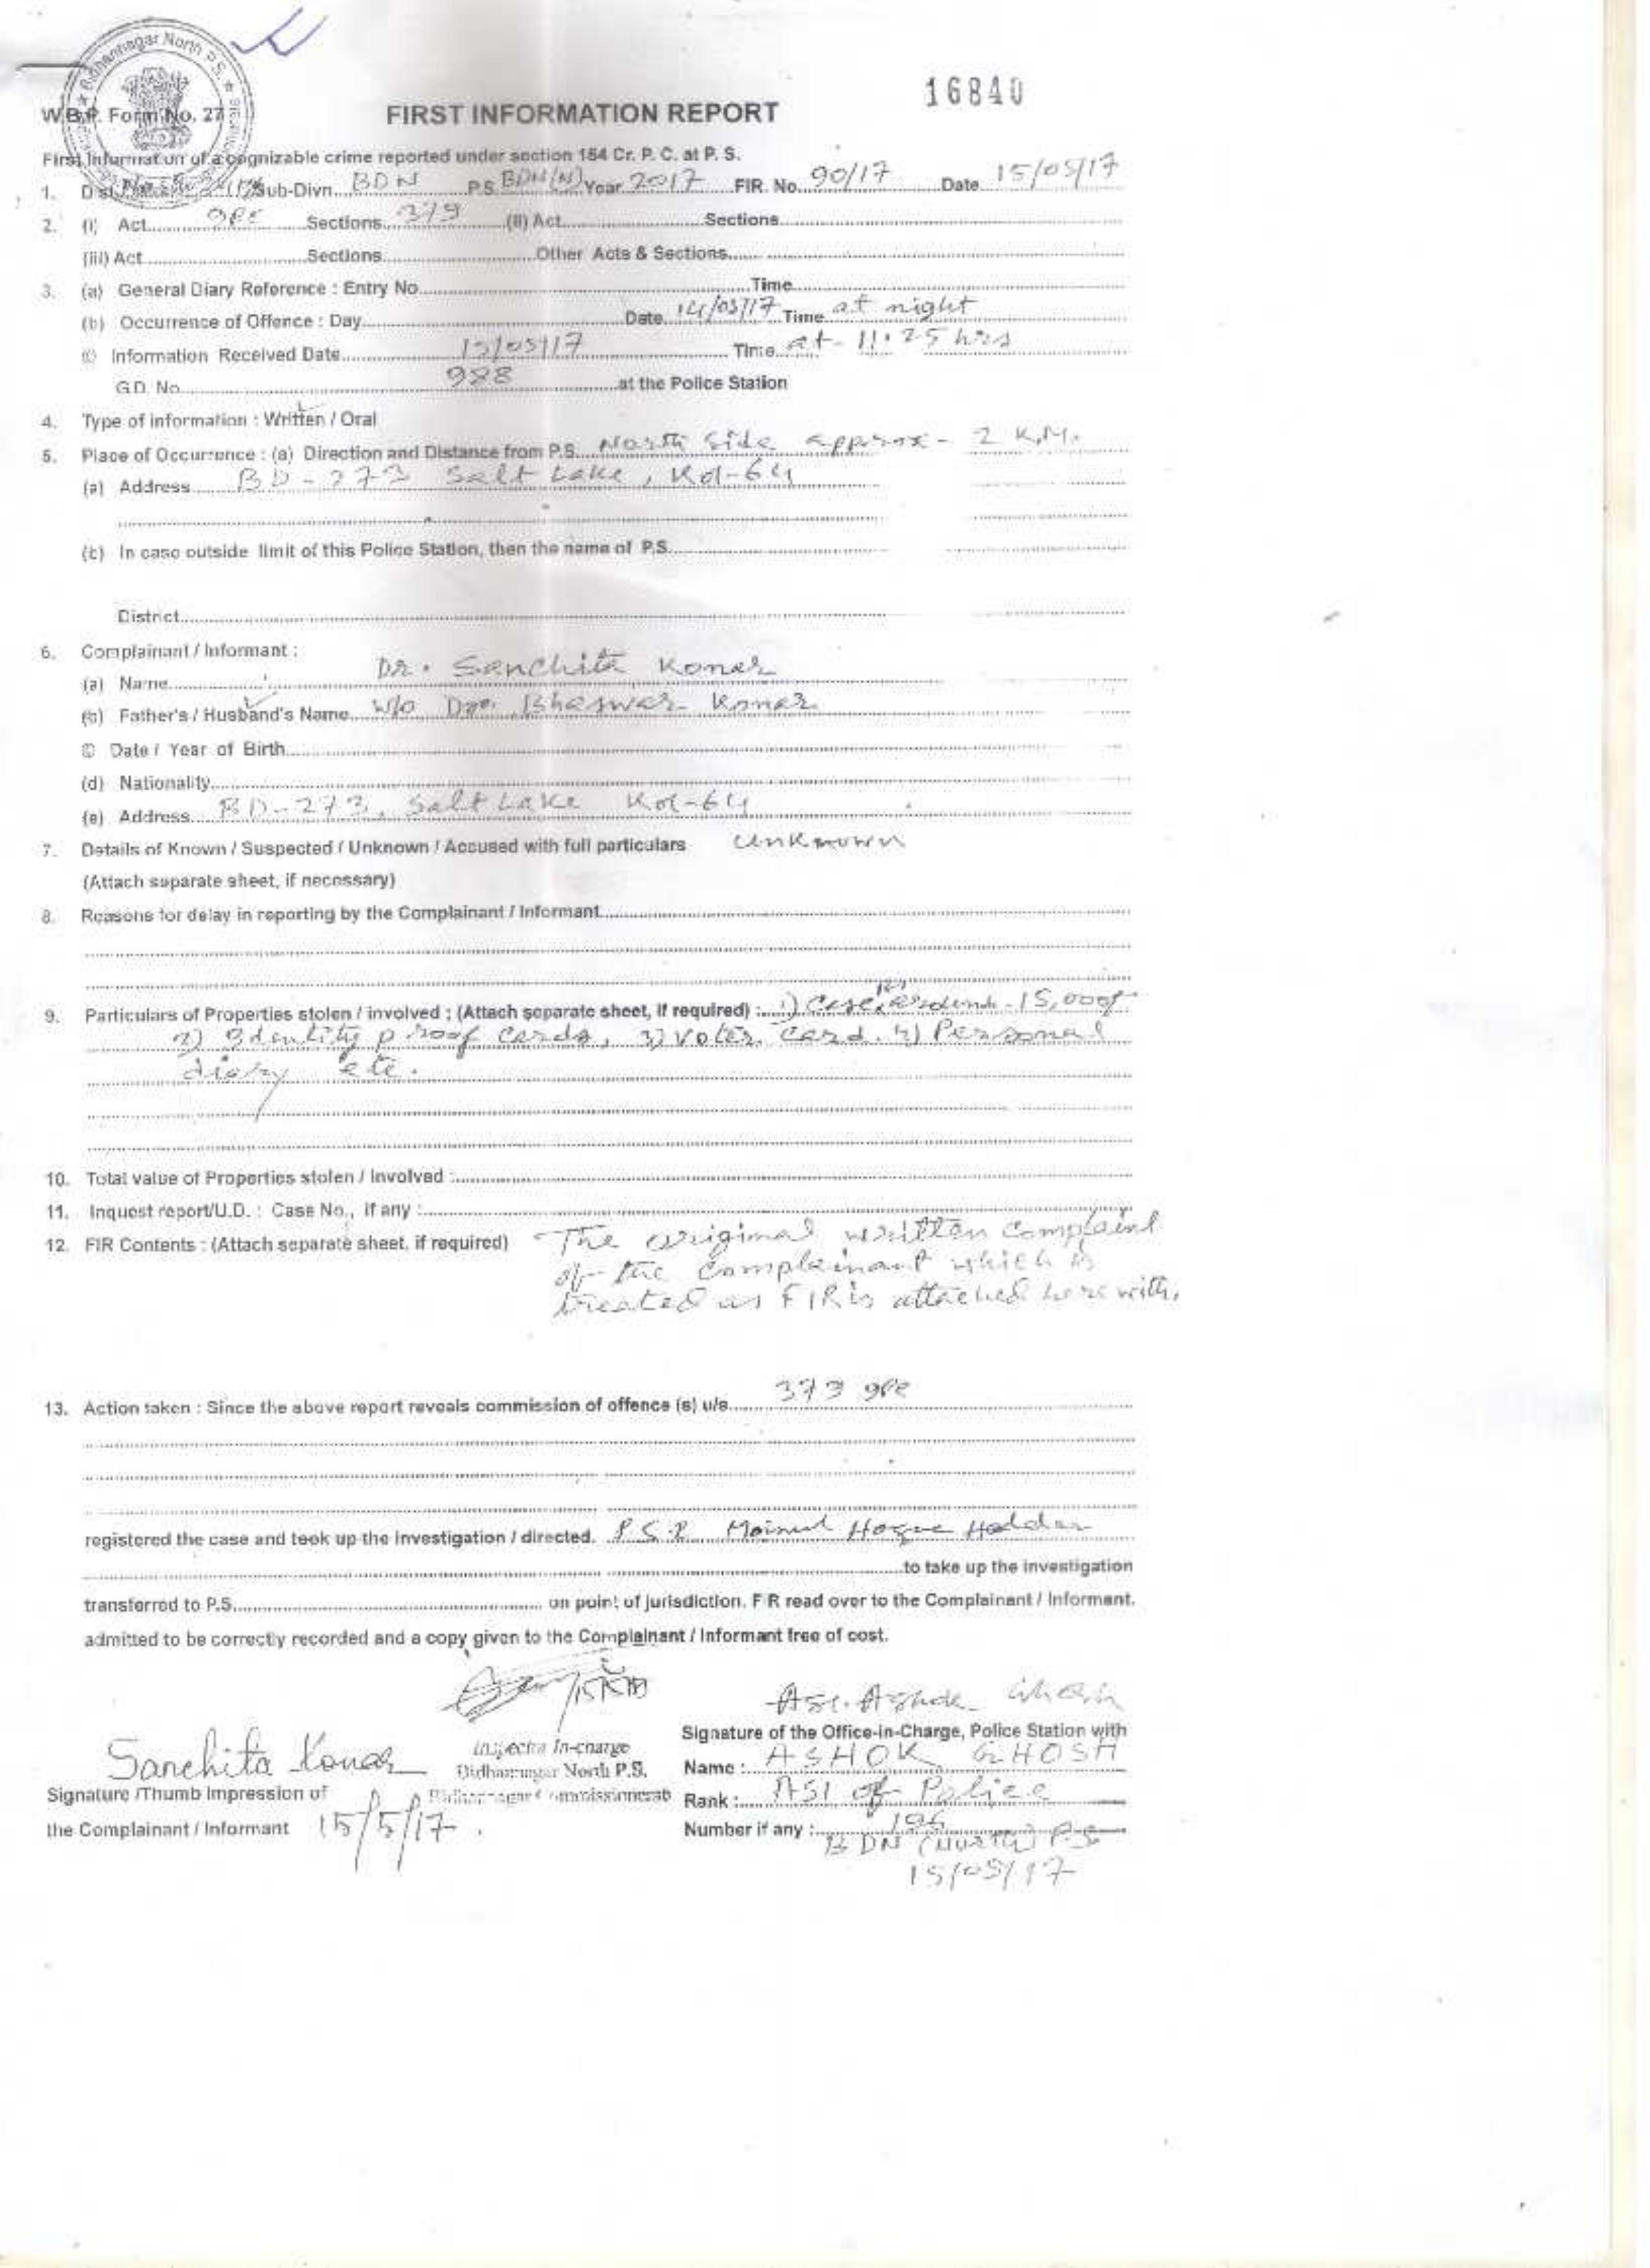 Bidhannagar North P.S.
16840
W.B.P. Form No. 27
FIRST INFORMATION REPORT
First Information of a cognizable crime reported under section 154 Cr. P. C. at P. S.
1. Dist. Sub-Divn. BDN P.S. BDN(N) Year 2017 FIR No. 90/17 Date 15/05/17
2. (i) Act IPC Sections 379 (II) Act Sections
(iii) Act Sections Other Acts & Sections
3. (a) General Diary Reference : Entry No. Time
(b) Occurrence of Offence : Day Date 14/05/17 Time at night
© Information Received Date 15/05/17 Time at - 11.25 hrs
G.D. No. 988 at the Police Station
4. Type of information : Written / Oral
5. Place of Occurrence : (a) Direction and Distance from P.S. North Side approx - 2 K.M.
(a) Address BD - 273 Salt Lake, Kol-64
(c) In case outside limit of this Police Station, then the name of P.S.
District
6. Complainant / Informant :
(a) Name Dr. Sanchita Konar
(b) Father's / Husband's Name W/o Bhaswar Konar
© Date / Year of Birth
(d) Nationality
(e) Address BD-273, Salt Lake Kol-64
7. Details of Known / Suspected / Unknown / Accused with full particulars Unknown
(Attach separate sheet, if necessary)
8. Reasons for delay in reporting by the Complainant / Informant
9. Particulars of Properties stolen / involved : (Attach separate sheet, if required) : 1) 15,000/-
2) Identity proof cards, 3) Voter card. 4) Personal
diary etc.
10. Total value of Properties stolen / Involved :
11. Inquest report/U.D. : Case No., if any :
12. FIR Contents : (Attach separate sheet, if required) The original written complaint
of the complainant which is
treated as FIR is attached here with.
13. Action taken : Since the above report reveals commission of offence (s) u/s 379 IPC
registered the case and took up the investigation / directed. P.S.I. Moinul Hoque Halder
to take up the investigation
transferred to P.S. on point of jurisdiction. FIR read over to the Complainant / Informant.
admitted to be correctly recorded and a copy given to the Complainant / Informant free of cost.
ASI. Ashok Ghosh
Signature of the Office-in-Charge, Police Station with
Sanchita Konar
Inspector In-charge
Bidhannagar North P.S.
Bidhannagar Commissionerate
Name : ASHOK GHOSH
Signature /Thumb Impression of
Rank : ASI of Police
the Complainant / Informant 15/5/17.
Number if any :
BDN (NORTH) P.S
15/05/17